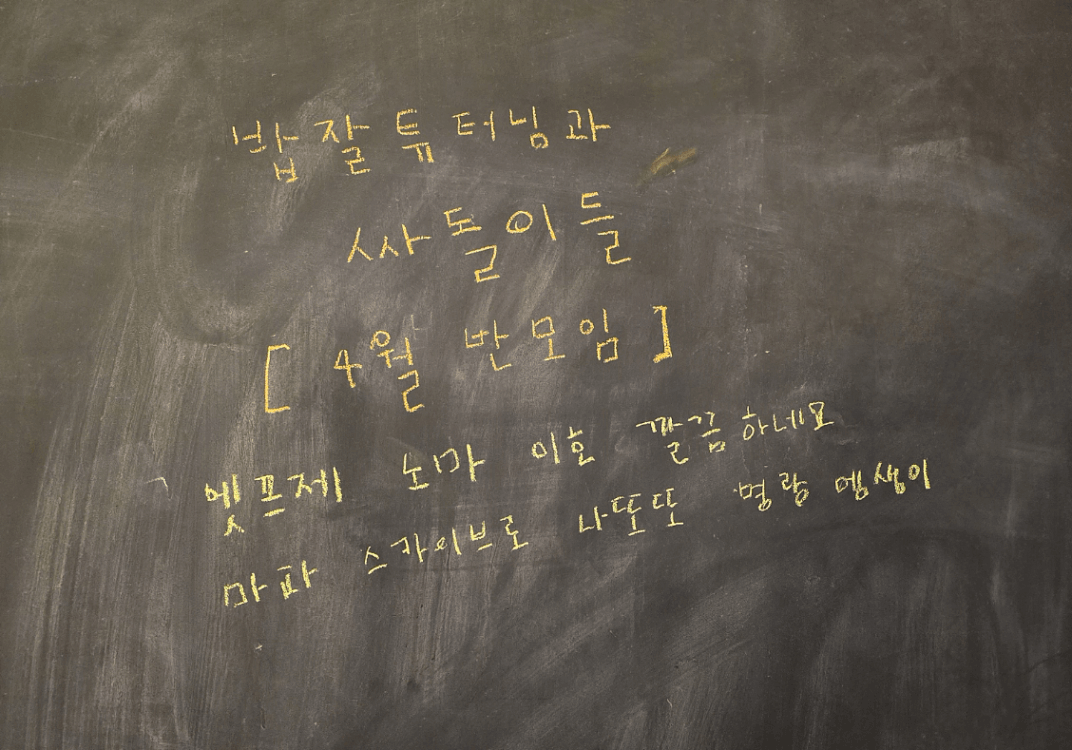 밥잘튜터님과
싸돌이들
[ 4월 반모임 ]
엣프제 노마 이호 깔끔하네요
마파 스카이브로 나또또 명랑 엠생이